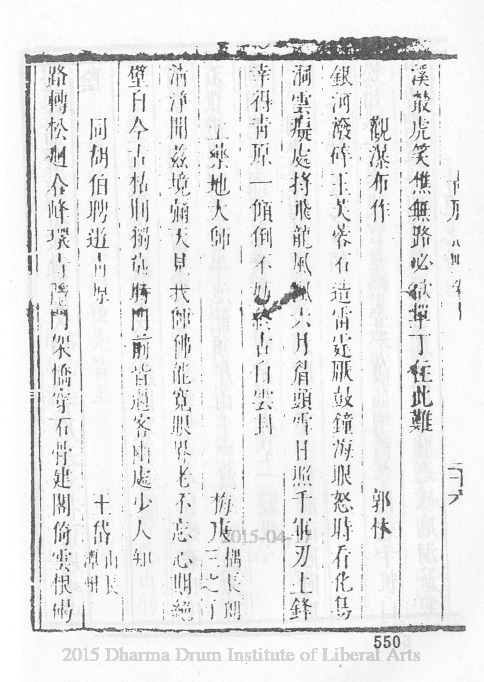 溪最虎笑憔無路必欲單丁在此難
觀瀑布作 郭林
銀河潑碎玉芙蓉石造雷霆厭鼓鐘海眼怒時看化鳥
洞雲癡處持飛龍風風六月眉頭雪日照千軍刃上鋒
幸得青原一傾倒不妨終古白雲封
上藥地大師 梅 偶長閣三之
清淨聞茲境彌天見我師佛能寬眼界老不忘心期絕
壁自今古枯荊獨 時門前皆過客幽處少人知
同胡伯聘遊青原 山長
路轉松迴谷峰環古 門架橋穿石骨建閣倚雲根碣
550
2015-04-
2015 Dharma Drum Institute of Liberal Arts